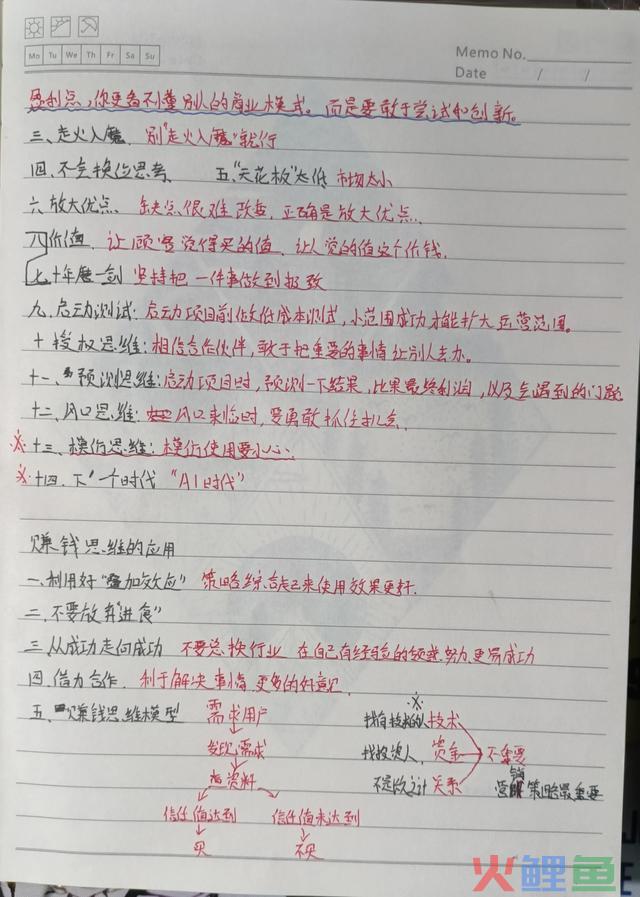 Mo Tu We Th Fr Sa Su
Memo No.
Date / /
盈利点,你更看不懂别人的商业模式。而是要敢于尝试和创新。
三、走火入魔 别"走火入魔"就行
四、不会换位思考 五"天花板"太低 市场太小
六 放大优点 缺点很难改变,正确是放大优点.
八价值 让顾客觉得买的值、让人觉的值这个价钱.
七、十年磨一剑 坚持把一件事做到极致
九、启动测试:启动项目前做低成本测式,小范围成功才能扩大运营范围。
十 授权思维:相信合作伙伴,敢于把重要的事情让别人去办。
十一、预测思维:启动项目时,预测一下结果,比果最终利润,以及会遇到的问题
十二、风口思维:风口来临时,要勇敢抓住机会.
※十三、模仿思维:模仿使用要小心.
※十四.下一个时代 "AI时代"
赚钱思维的应用
一.利用好"叠加效应" 策略综合起来使用效果更好.
二.不要放弃"进食"
三.从成功走向成功 不要总换行业 在自己有经验的领域努力更易成功
四.借力合作. 利于解决事情 更多的好意见.
五.赚钱思维模型 需求用户 找有技术的人 技术
发现需求 找投资人, 资金 不重要
查资料 关系 营销策略最重要
信任值达到 信任值未达到
买 不买
火鲤鱼